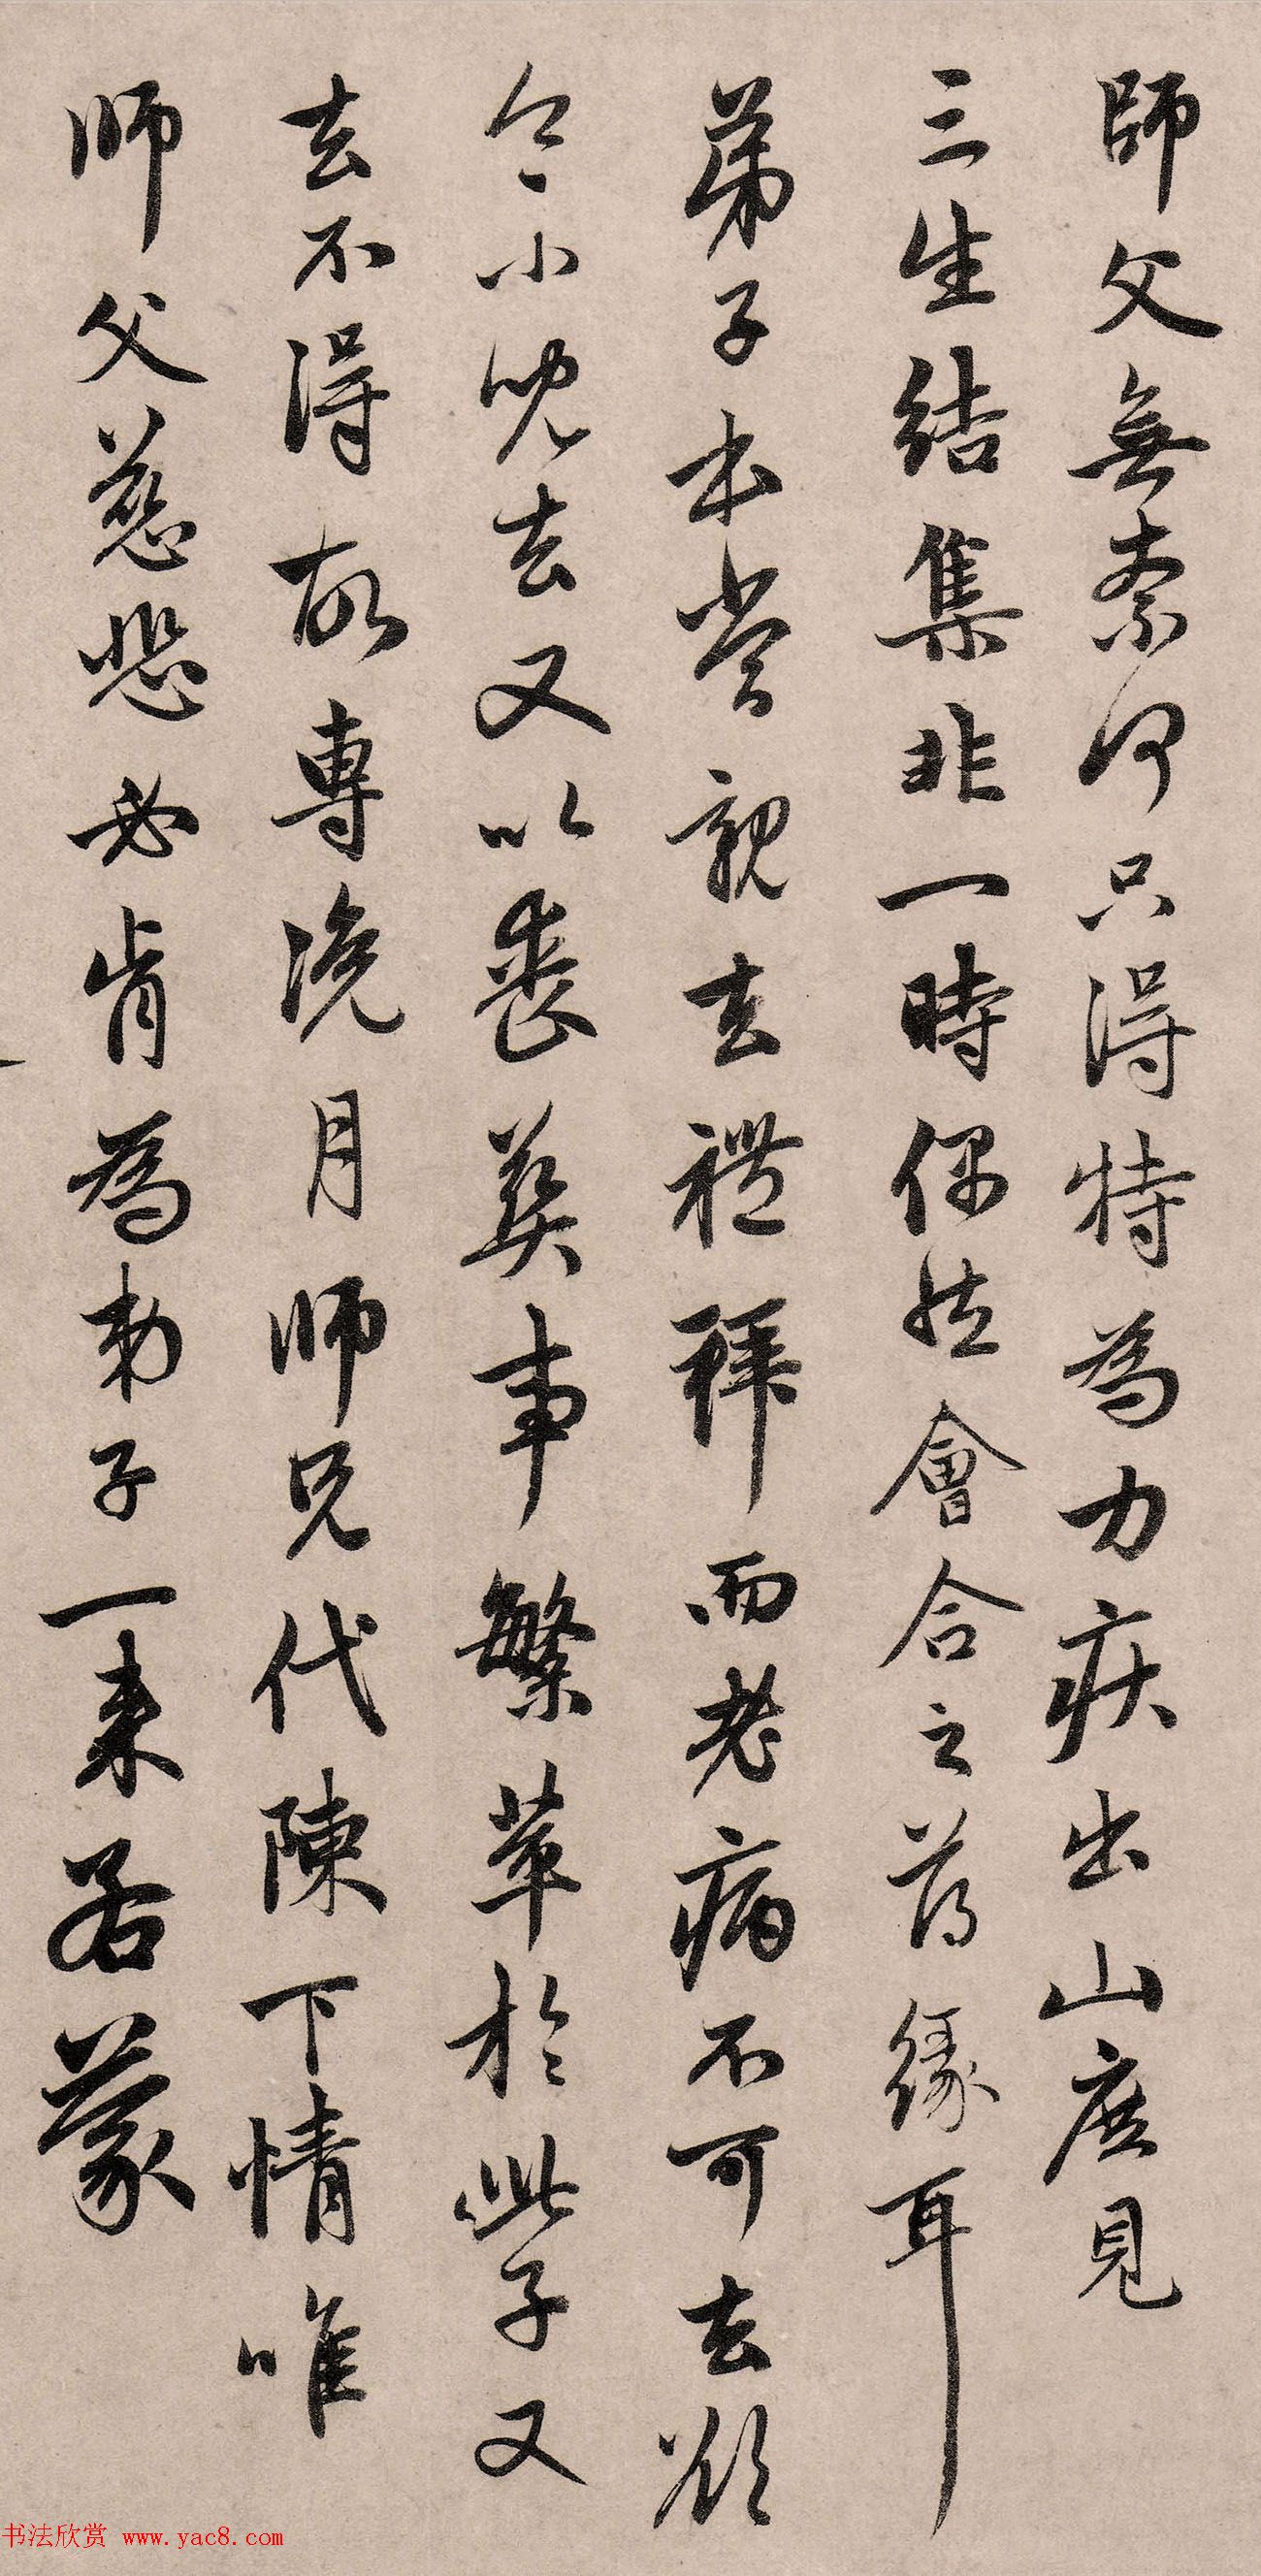 師父無奈何只得特為力疾出山庶見
三生結集非一時偶然會合之薄緣耳
弟子本當親去禮拜而老病不可去欲
令小兒去又以喪葬事繁萃於此子又
去不得故專浼月師兄代陳下情唯
師父慈悲必肯為弟子一來若蒙
书法欣赏 www.yac8.com